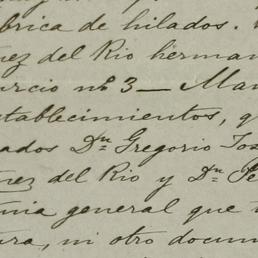 brica de hilados.
nez del Rio herman
urcio nº 3 — Man
stablecimientos, q
ados Dn Gregorio Jos
nez del Rio y Dn Pe
nia general que t
ura, ni otro docum